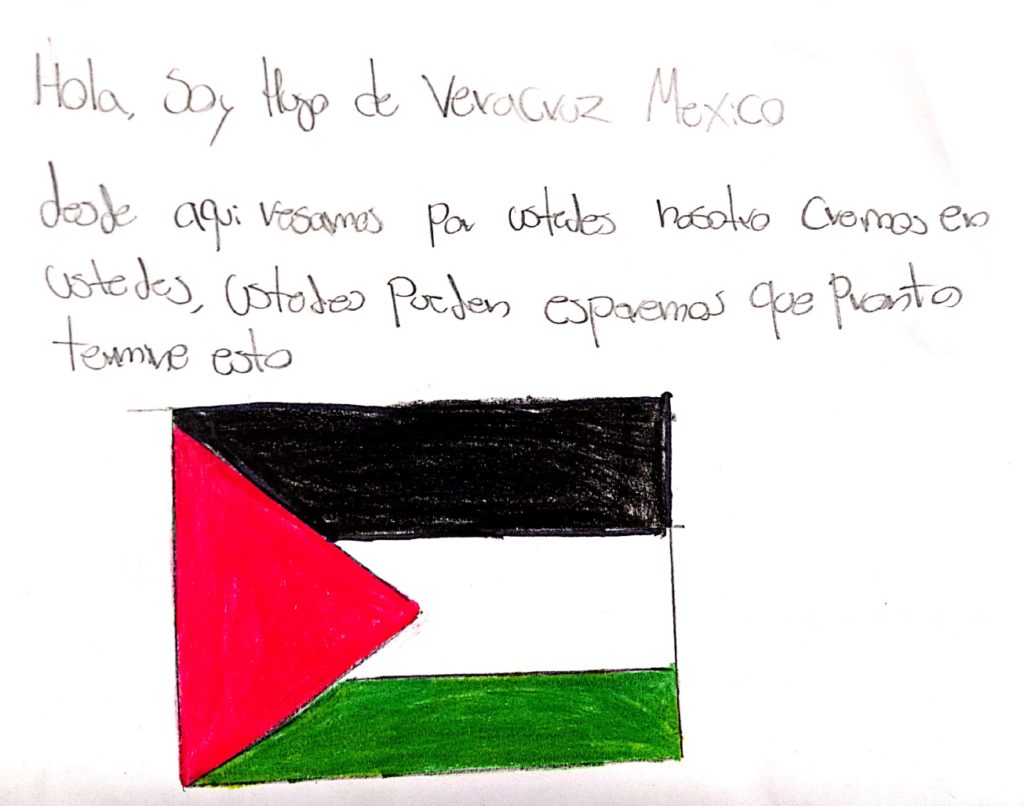 Hola, Soy Hugo de Veracruz Mexico
desde aqui resamos por ustedes nosotro Cremos en
ustedes, Ustedes Pueden esperemos que Pronto
termine esto